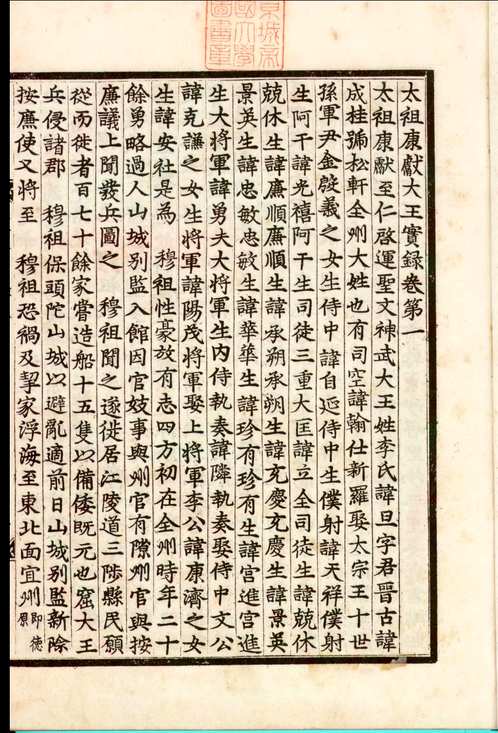 太祖康獻大王實錄卷第一
太祖康獻至仁啓運聖文神武大王姓李氏諱旦字君晉古諱
成桂號松軒全州大姓也有司空諱翰仕新羅娶太宗王十世
孫軍尹金殷義之女生侍中諱自延侍中生僕射諱天祥僕射
生阿干諱光禧阿干生司徒三重大匡諱立全司徒生諱兢休
兢休生諱廉順廉順生諱承朔承朔生諱充慶充慶生諱景英
景英生諱忠敏忠敏生諱華華生諱珍有珍有生諱宮進宮進
生大將軍諱勇夫大將軍生內侍執奏諱隣執奏娶侍中文公
諱克謙之女生將軍諱陽茂將軍娶上將軍李公諱康濟之女
生諱安社是爲 穆祖性豪放有志四方初在全州時年二十
餘勇略過人山城別監入館因官妓事與州官有隙州官與按
廉議上聞發兵圖之 穆祖聞之遂徙居江陵道三陟縣民願
從而徙者百七十餘家嘗造船十五隻以備倭旣元也窟大王
兵侵諸郡 穆祖保頭陀山城以避亂適前日山城別監新除
按廉使又將至 穆祖恐禍及挈家浮海至東北面宜州卽德原